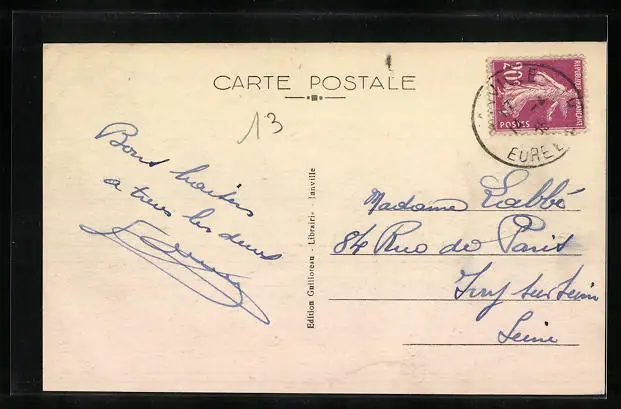 CARTE POSTALE
20c
REPUBLIQUE FRANÇAISE
POSTES
EURE
13
Bons baisers
a tous les deux
Edition Guilloteau - Librairie - Janville
Madame Labbé
84 Rue de Paris
Ivry sur Seine
Seine